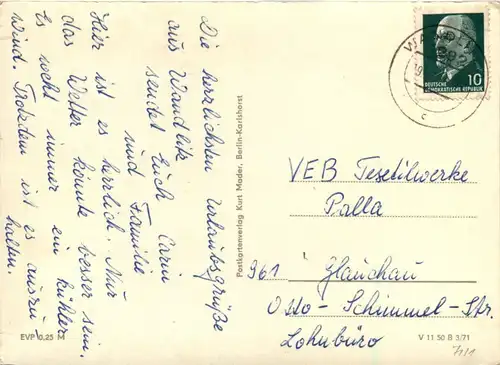 Die herrlichsten Urlaubsgrüße
aus Wandlitz
sendet Euch Carin
und Familie
Hier ist es herrlich. Nur
das Wetter könnte besser sein.
Es weht immer ein kühler
Wind. Trotzdem ist es auszu-
halten.
Postkartenverlag Kurt Mader, Berlin-Karlshorst
DEUTSCHE
DEMOKRATISCHE REPUBLIK
10
VEB Textilwerke
Palla
961 Glauchau
Otto-Schimmel-Str.
Lohnbüro
EVP 0,25 M
V 11 50 B 3/71